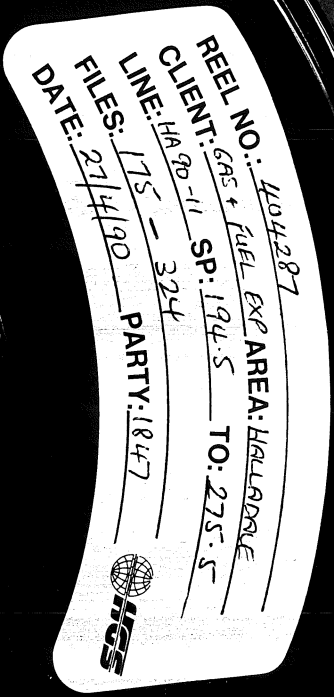 REEL NO.: 404287
CLIENT: GAS & FUEL EXP AREA: HALLADALE
LINE: HA90-11 SP: 194.5 TO: 275.5
FILES: 175 - 324
DATE: 27/4/90 PARTY: 1847
HGS